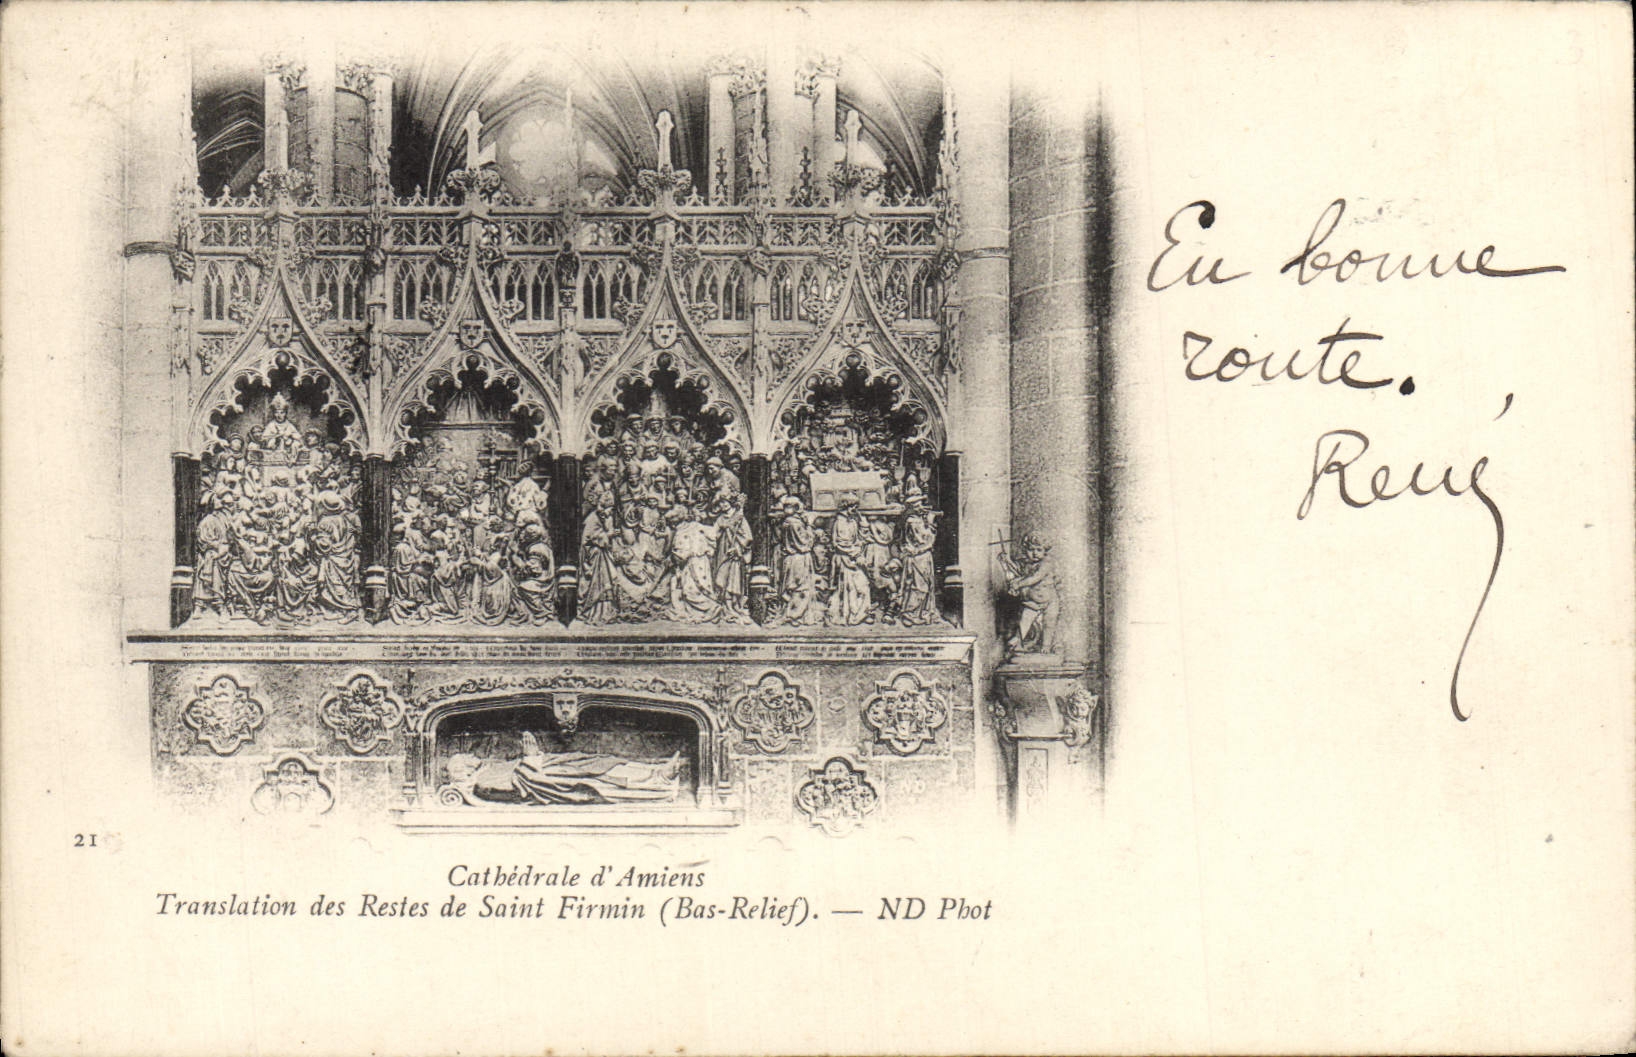 En bonne
route.
René
21
Cathédrale d'Amiens
Translation des Restes de Saint Firmin (Bas-Relief). — ND Phot